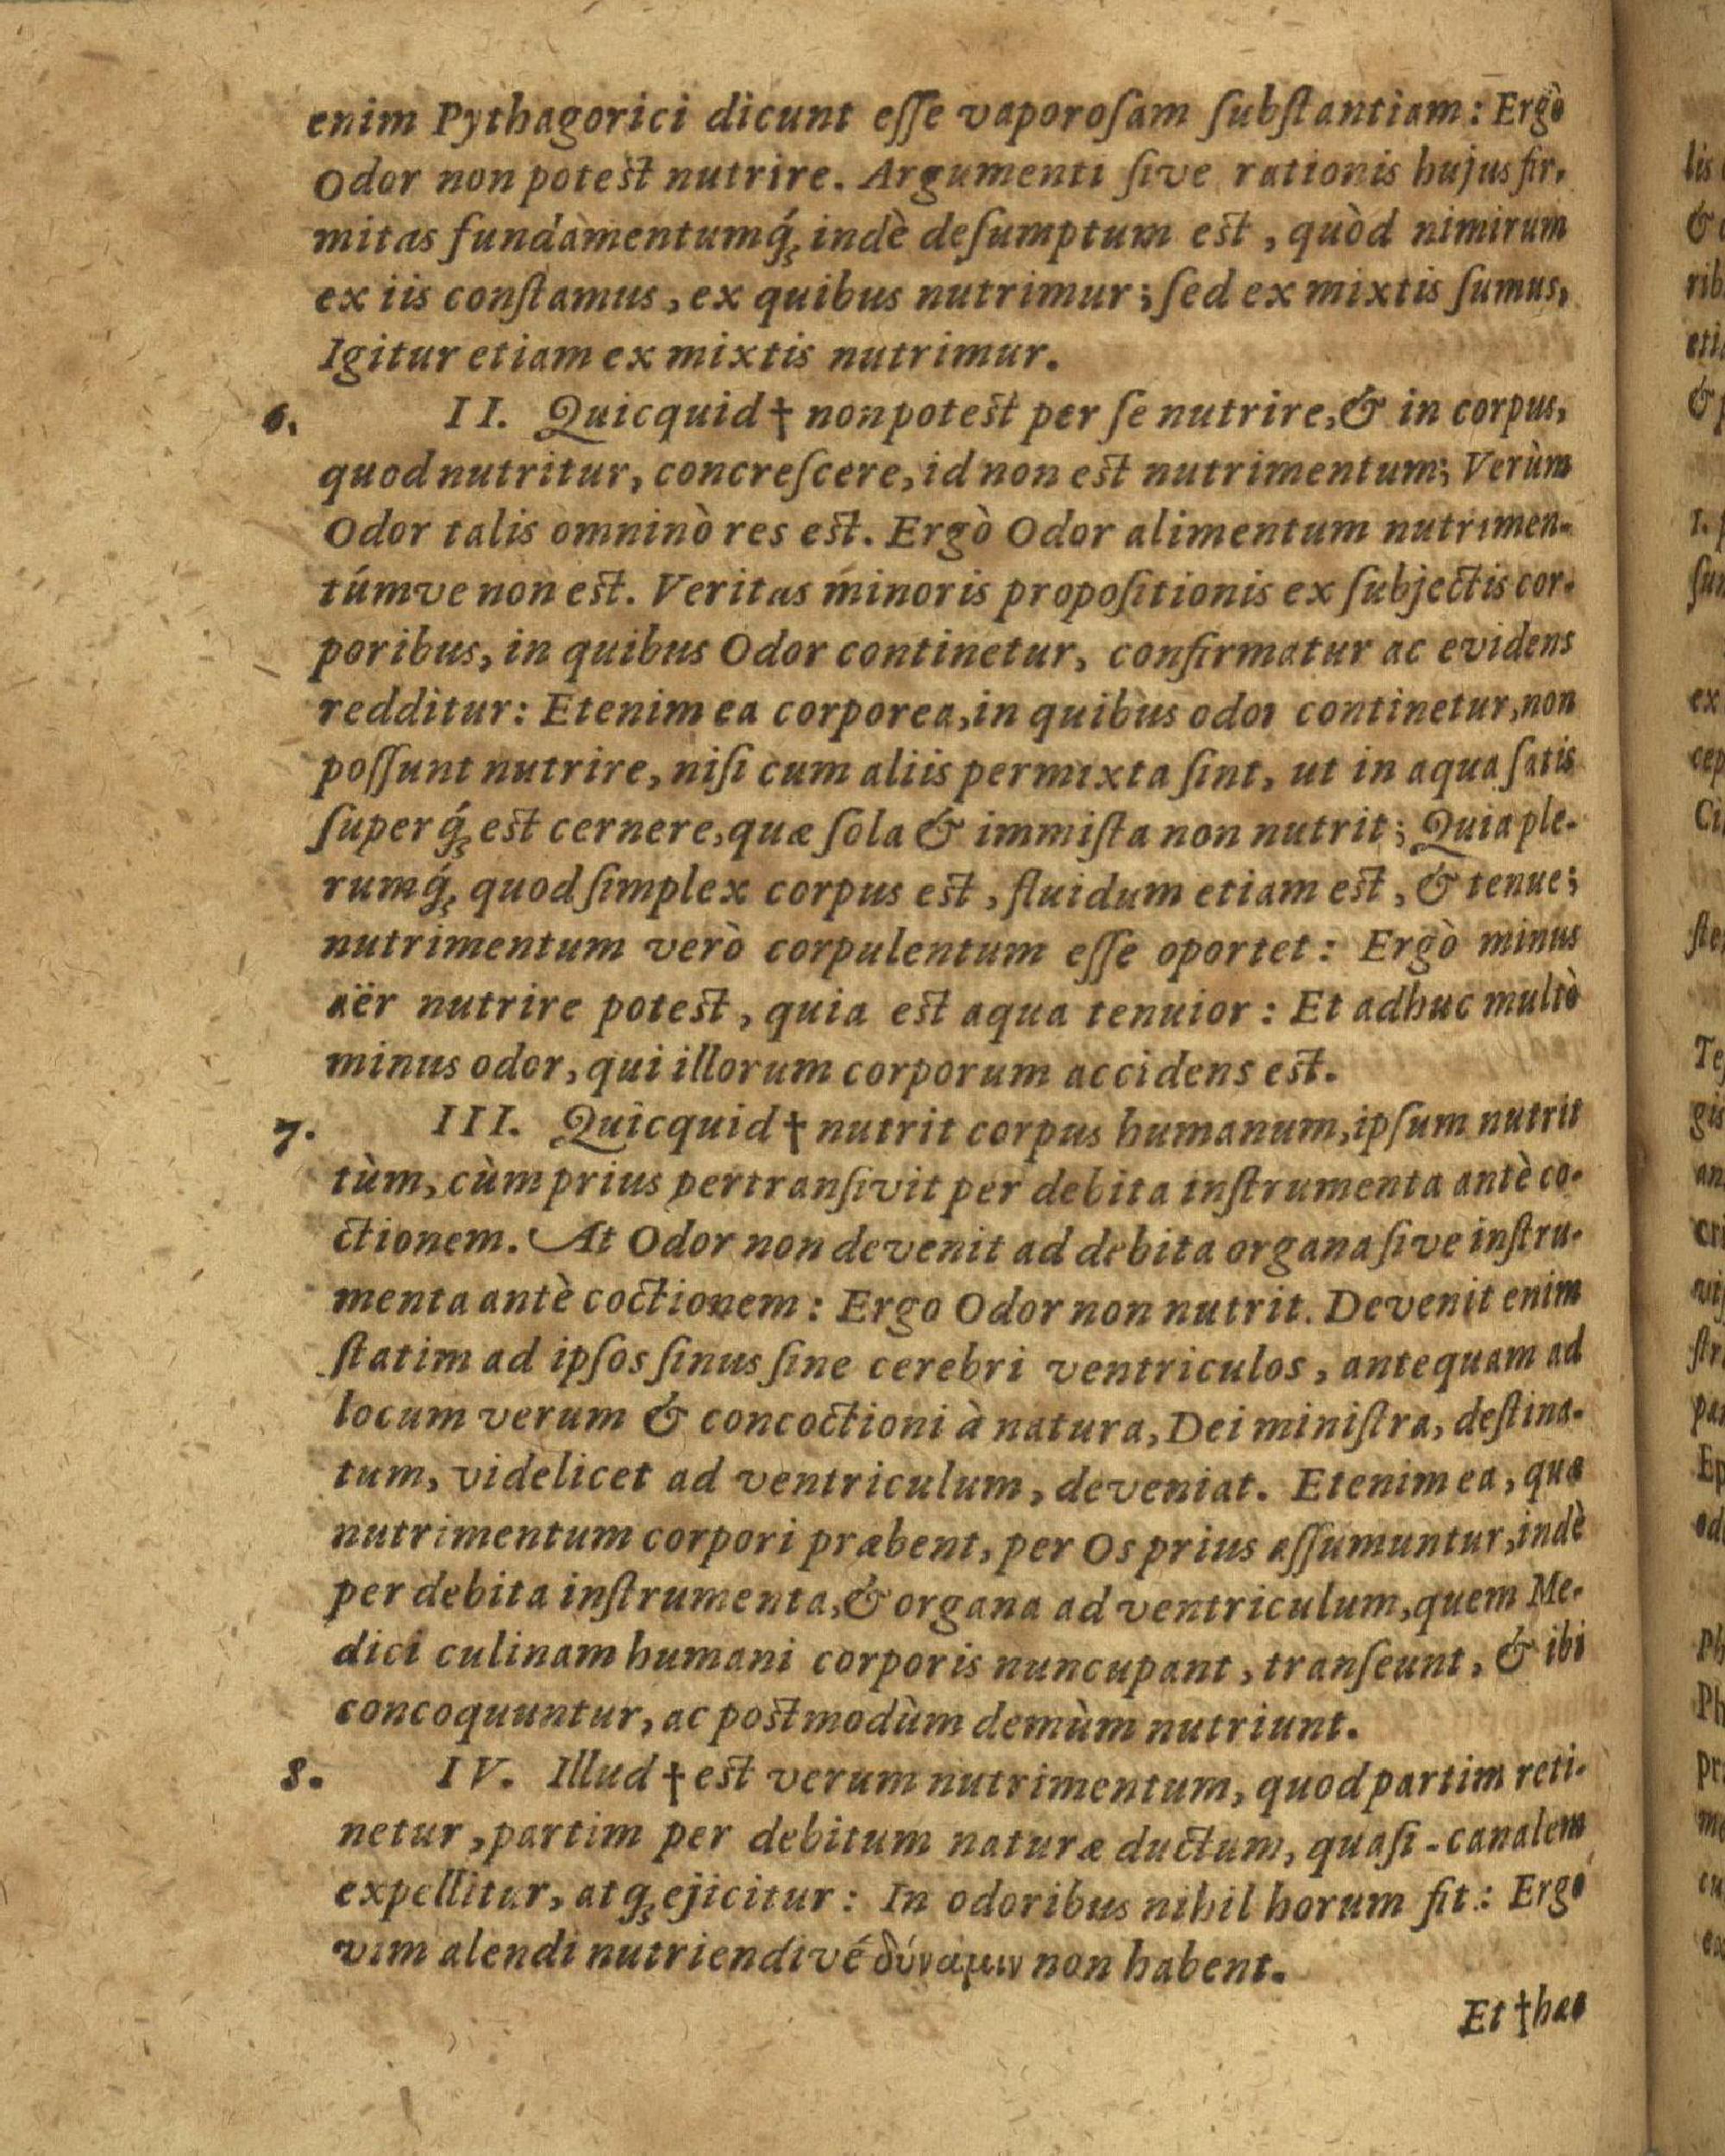 enim Pythagorici dicunt eſſe vaporoſam ſubſtantiam: Ergò
Odor non poteſt nutrire. Argumenti ſive rationis hujus fir-
mitas fundàmentumq́ꝫ indè deſumptum eſt, quòd nimirum
ex iis conſtamus, ex quibus nutrimur; ſed ex mixtis ſumus,
Igitur etiam ex mixtis nutrimur.
6. II. Quicquid † non poteſt per ſe nutrire, & in corpus,
quod nutritur, concreſcere, id non eſt nutrimentum; Verùm
Odor talis omninò res eſt. Ergò Odor alimentum nutrimen-
túmve non eſt. Veritas minoris propoſitionis ex ſubjectis cor-
poribus, in quibus Odor continetur, confirmatur ac evidens
redditur: Etenim ea corporea, in quibus odor continetur, non
poſſunt nutrire, niſi cum aliis permixta ſint, ut in aqua ſatis
ſuperq́ꝫ eſt cernere, quæ ſola & immiſta non nutrit; Quia ple-
rumq́ꝫ quod ſimplex corpus eſt, fluidum etiam eſt, & tenue;
nutrimentum verò corpulentum eſſe oportet: Ergò minus
aër nutrire poteſt, quia eſt aqua tenuior: Et adhuc multò
minus odor, qui illorum corporum accidens eſt.
7. III. Quicquid † nutrit corpus humanum, ipſum nutrit
tùm, cùm prius pertranſivit per debita inſtrumenta antè co-
ctionem. At Odor non devenit ad debita organa ſive inſtru-
menta antè coctionem: Ergo Odor non nutrit. Devenit enim
ſtatim ad ipſos ſinus ſine cerebri ventriculos, antequam ad
locum verum & concoctioni à natura, Dei miniſtra, deſtina-
tum, videlicet ad ventriculum, deveniat. Etenim ea, quæ
nutrimentum corpori præbent, per Os prius aſſumuntur, indè
per debita inſtrumenta, & organa ad ventriculum, quem Me-
dici culinam humani corporis nuncupant, tranſeunt, & ibi
concoquuntur, ac poſtmodùm demùm nutriunt.
8. IV. Illud † eſt verum nutrimentum, quod partim reti-
netur, partim per debitum naturæ ductum, quaſi-canalem
expellitur, atqꝫ ejicitur: In odoribus nihil horum fit: Ergò
vim alendi nutriendivé δύναμιν non habent.
Et † hæc